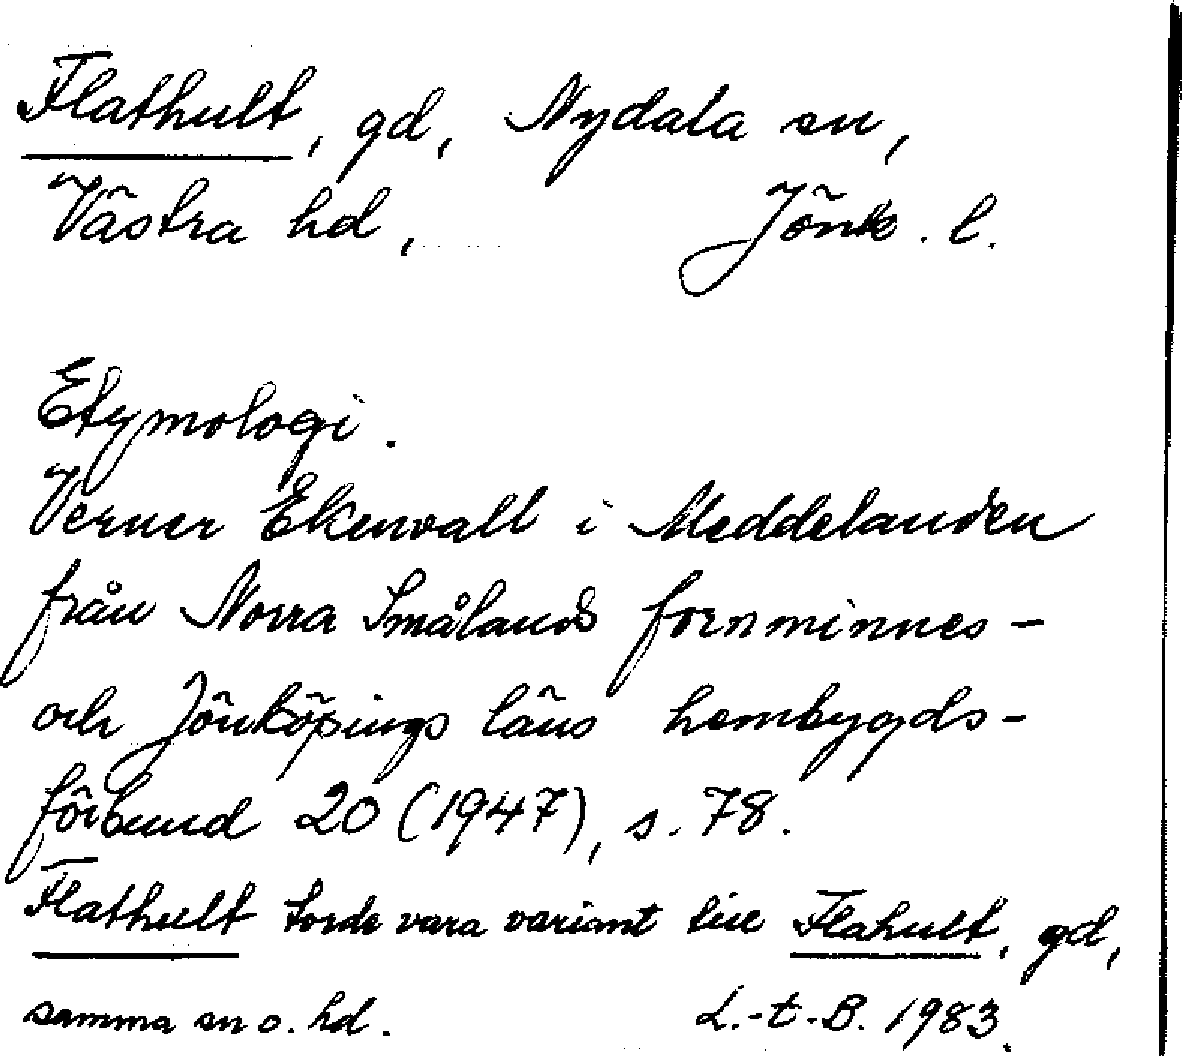 Flathult, gd, Nydala sn,
Västra hd, Jönk. l.
Etymologi.
Verner Ekenvall i Meddelanden
från Norra Smålands fornminnes-
och Jönköpings läns hembygds-
förbund 20 (1947), s. 78.
Flathult torde vara variant till Flahult, gd,
samma sn o. hd. L.-t.-B. 1983.